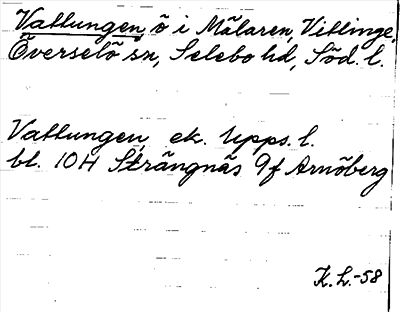 Vattungen, ö i Mälaren, Vittinge,
Överselö sn, Selebo hd, Söd. l.
Vattungen, ek. Upps. l.
bl. 10H Strängnäs 9f Arnöberg
K.L.-58